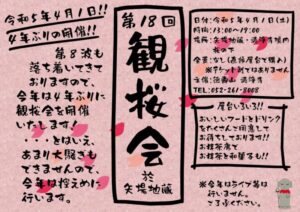 令和5年4月1日!!
4年ぶりの開催!!
第8波も
落ち着いてきて
おりますので、
今年は4年ぶりに
観桜会を開催
いたします
・・・とはいえ、
あまり大騒ぎも
できませんので、
今年は控えめに
行います。
第18回
観桜会
於
矢場地蔵
日付:令和5年4月1日(土)
時間:13:00〜19:00
場所:矢場地蔵・清浄寺内
桜の下
会費:なし(直接屋台で購入)
※チケット制ではありません
主催:徳寿山 清浄寺
TEL:052-261-8008
屋台いろいろ!!
おいしいフードとドリンク
をたくさんご用意して
お待ちしております!!
お抹茶席で
お抹茶と和菓子も!!
※今年はライブ等は
行いません。
ご了承ください。